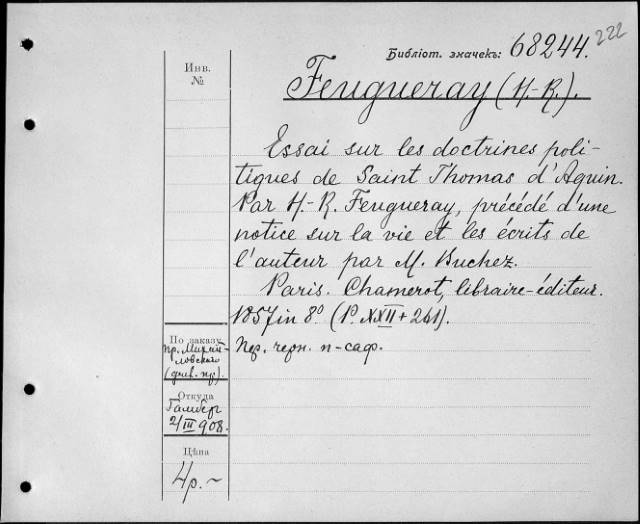 222
Библіот. значекъ: 68244.
Инв.
№
Feugueray (H.-R.).
Essai sur les doctrines poli-
tiques de Saint Thomas d'Aquin.
Par H.-R. Feugueray, précédé d'une
notice sur la vie et les écrits de
l'auteur par M. Buchez.
Paris. Chamerot, libraire-éditeur.
1857 in 8° (P. XXII + 261).
По заказу
пр. Михай-
ловскаго
Пер. черн. п-саф.
Откуда
Гамбер
2/III 908.
Цѣна
4 р. ~